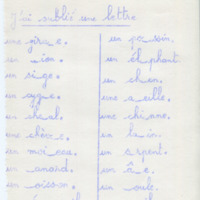 J'ai oublié une lettre
une gira_e.
un _ion.
un si_ge.
un _ygne.
un ch_al.
une chèv_e.
un moi_eau.
un _anard.
un oisson.
un po_ssin.
un él_phant.
un ch_en.
une a_eille.
une ch_enne.
un la_in.
un s_rpent.
un â_e.
un _oule.